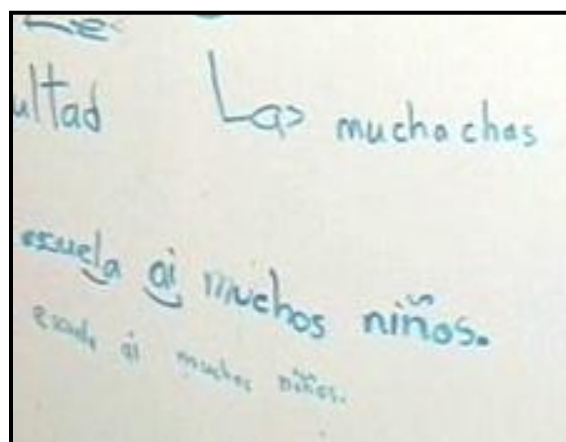 ultad Las muchachas
escuela ai muchos niños.
escuela ai muchos niños.